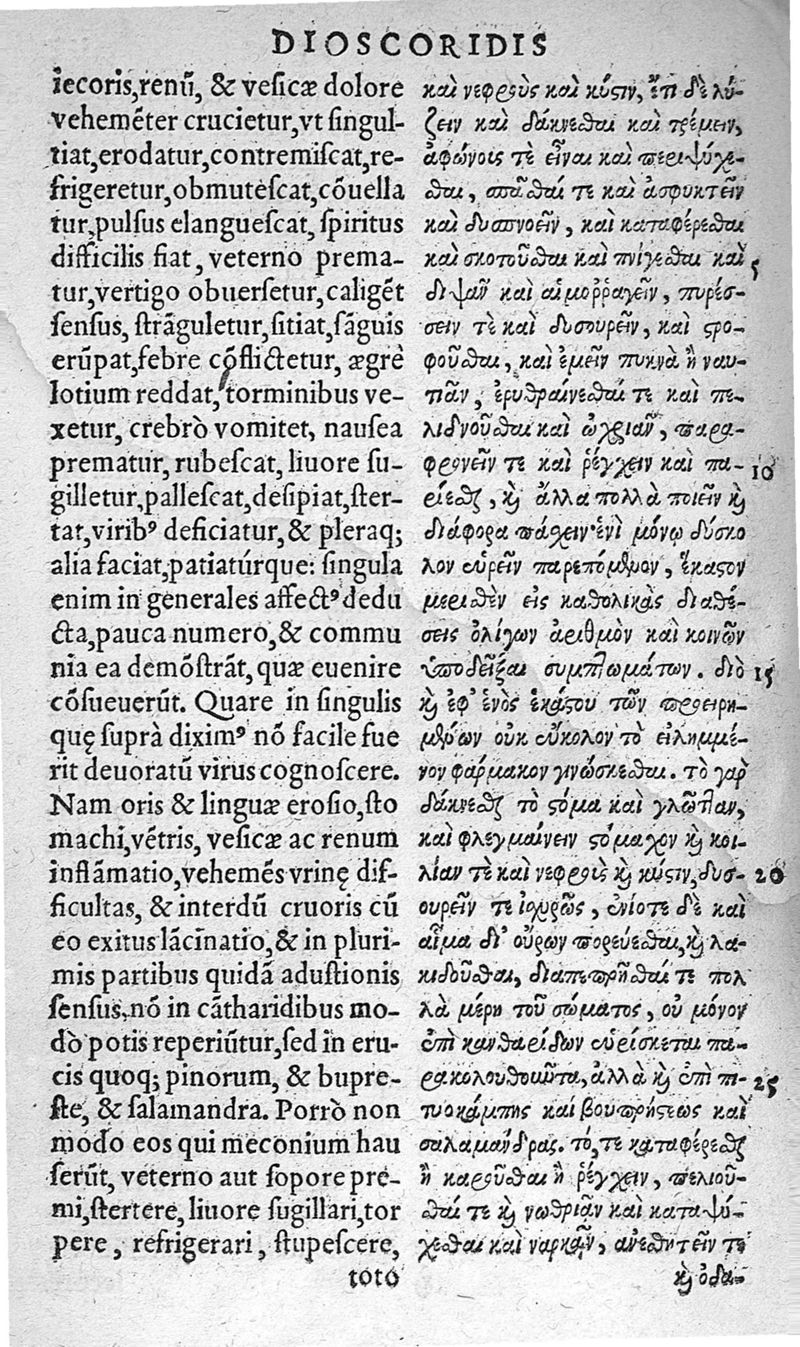 DIOSCORIDIS
iecoris,renũ, & vesicæ dolore
vehemẽter crucietur,vt singul-
tiat,erodatur,contremiscat,re-
frigeretur,obmutescat,cõuella
tur,pulsus elanguescat, spiritus
difficilis fiat, veterno prema-
tur,vertigo obuersetur,caligẽt
sensus, strãguletur,sitiat,sãguis
erũpat,febre cõflictetur, ægrè
lotium reddat, torminibus ve-
xetur, crebrò vomitet, nausea
prematur, rubescat, liuore su-
gilletur,pallescat,desipiat,ster-
tat,viribꝰ deficiatur,& pleraq;
alia faciat,patiatúrque: singula
enim in generales affectꝰ dedu
cta,pauca numero,& commu
nia ea demõstrãt, quæ euenire
cõsueuerũt. Quare in singulis
quę suprà diximꝰ nõ facile fue
rit deuoratũ virus cognoscere.
Nam oris & linguæ erosio,sto
machi,vẽtris, vesicæ ac renum
inflãmatio,vehemẽs vrinę dif-
ficultas, & interdũ cruoris cũ
eo exitus lãcinatio,& in pluri-
mis partibus quidã adustionis
sensus,nõ in cãtharidibus mo-
dò potis reperiũtur,sed in eru-
cis quoq; pinorum, & bupre-
ste, & salamandra. Porrò non
modo eos qui meconium hau
serũt, veterno aut sopore pre-
mi,stertere, liuore sugillari,tor
pere, refrigerari, stupescere,
toto
καὶ νεφροὺς καὶ κύστιν, ἔτι δὲ λύ-
ζειν καὶ δάκνεσθαι καὶ τρέμειν,
ἀφώνοις τὲ εἶναι καὶ περιψύχε-
σθαι, σπᾶσθαί τε καὶ ἀσφυκτεῖν
καὶ δυσπνοεῖν, καὶ καταφέρεσθαι
καὶ σκοτοῦσθαι καὶ πνίγεσθαι καὶ 5
διψᾶν καὶ αἱμοῤῥαγεῖν, πυρέσ-
σειν τὲ καὶ δυσουρεῖν, καὶ στρο-
φοῦσθαι, καὶ ἐμεῖν πυκνὰ ἢ ναυ-
τιᾶν, ἐρυθραίνεσθαί τε καὶ πε-
λιδνοῦσθαι καὶ ὠχριᾶν, παρα-
φρονεῖν τε καὶ ῥέγχειν καὶ πα- 10
ρίεσθαι, καὶ ἄλλα πολλὰ ποιεῖν καὶ
διάφορα πάσχειν ἑνὶ μόνῳ δύσκο
λον εὑρεῖν παρεπόμενον, ἕκαστον
μερισθὲν εἰς καθολικὰς διαθέ-
σεις ὀλίγων ἀριθμὸν καὶ κοινῶν
ὑποδεῖξαι συμπτωμάτων. διὸ 15
καὶ ἐφ' ἑνὸς ἑκάστου τῶν προειρη-
μένων οὐκ εὔκολον τὸ εἰλημμέ-
νον φάρμακον γινώσκεσθαι. τὸ γὰρ
δάκνεσθαι τὸ στόμα καὶ γλῶτταν,
καὶ φλεγμαίνειν στόμαχον καὶ κοι-
λίαν τὲ καὶ νεφροὺς καὶ κύστιν, δυσ- 20
ουρεῖν τε ἰσχυρῶς, ἐνίοτε δὲ καὶ
αἷμα δι' οὔρων πορεύεσθαι, καὶ λα-
κιδοῦσθαι, διαπεπρῆσθαί τε πολ
λὰ μέρη τοῦ σώματος, οὐ μόνον
ἐπὶ κανθαρίδων εὑρίσκεται πα-
ρακολουθοῦντα, ἀλλὰ καὶ ἐπὶ πι- 25
τυοκάμπης καὶ βουπρήστεως καὶ
σαλαμάνδρας. τό, τε καταφέρεσθαι
ἢ καροῦσθαι ἢ ῥέγχειν, πελιοῦ-
σθαί τε καὶ νωθριᾶν καὶ καταψύ-
χεσθαι καὶ ναρκᾶν, ἀνεσθητεῖν τε
καὶ ὀδα-